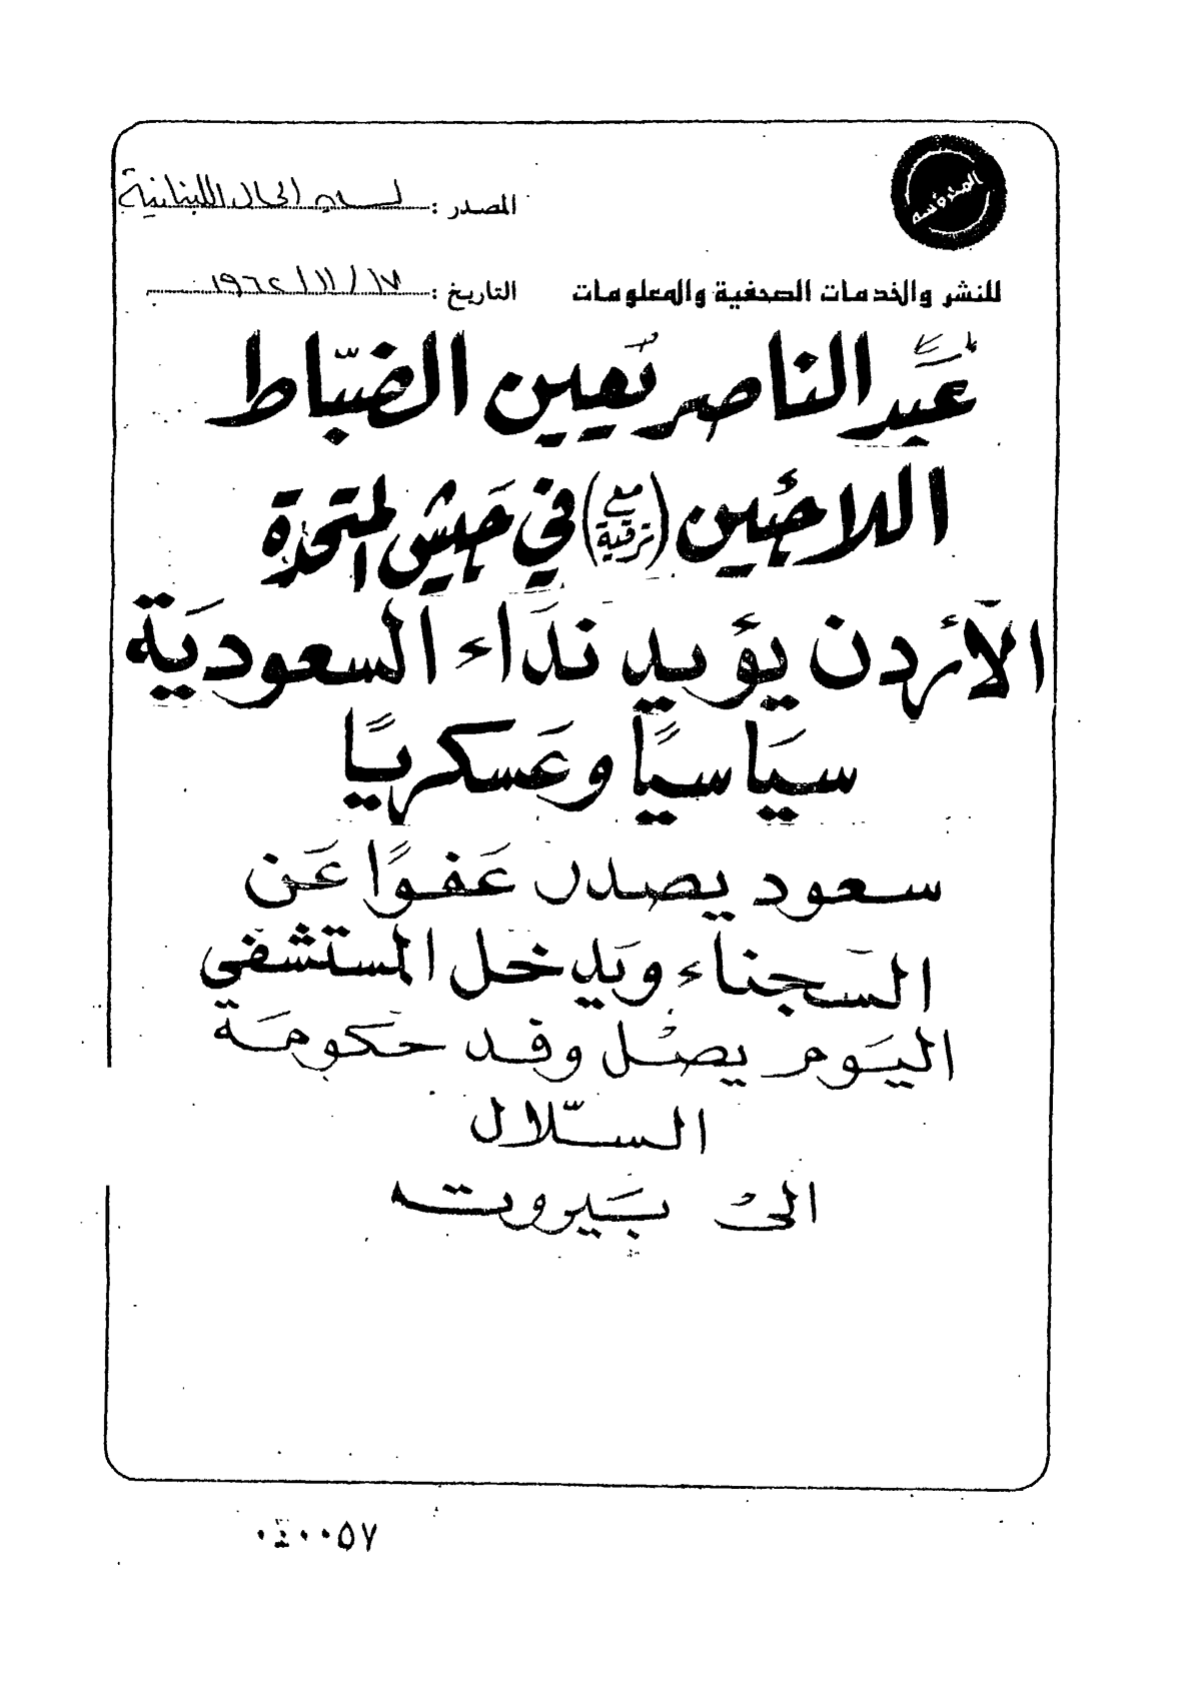 المحروسة
المصدر : لسان الحال اللبنانية
للنشر والخدمات الصحفية والمعلومات
التاريخ : ١٩٦٢/١١/١٧
عبد الناصر يعين الضباط
اللاجئين (مع ترقية) في جيش المتحدة
الأردن يؤيد نداء السعودية
سياسيًا وعسكريًا
سعود يصدر عفوًا عن
السجناء ويدخل المستشفى
اليوم يصل وفد حكومة
السلال
الى بيروت
٠٤٠٠٥٧